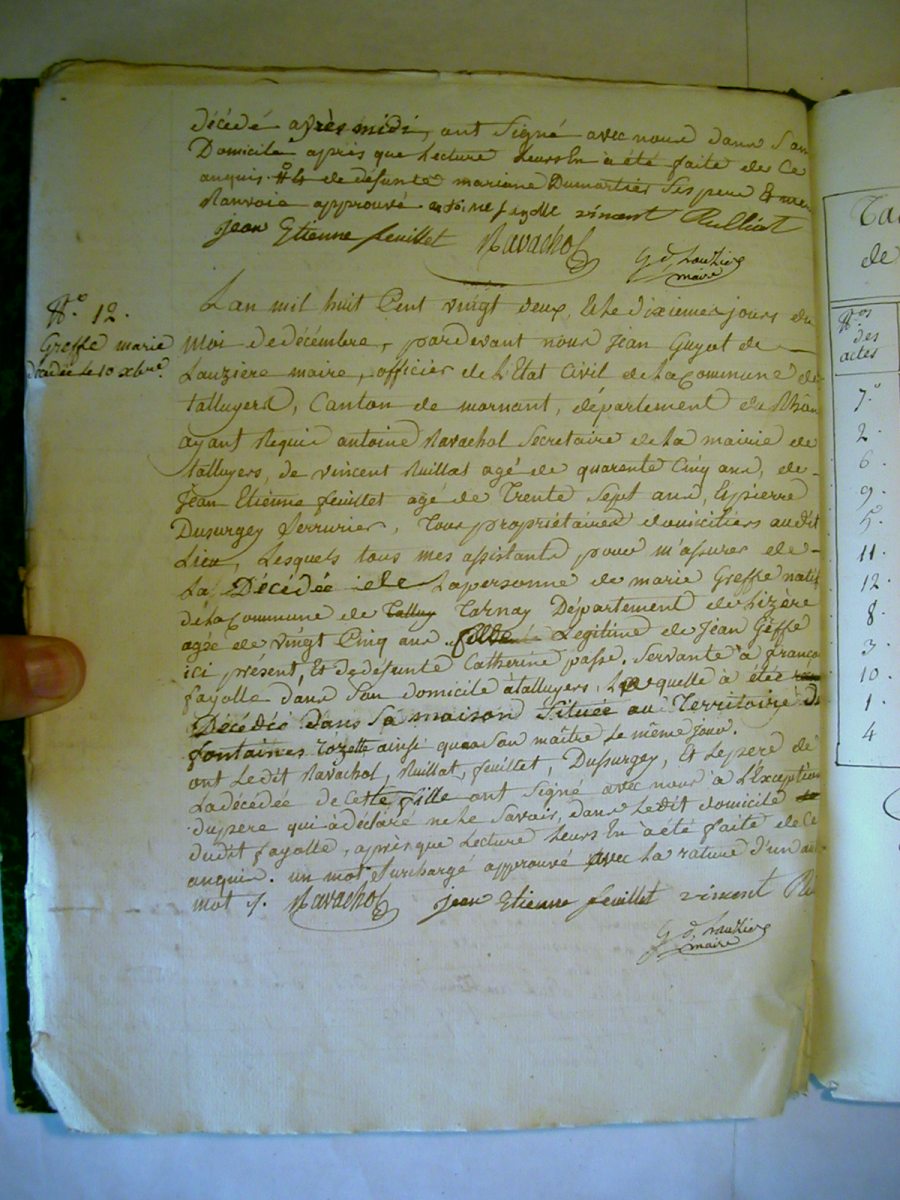 décédé après midi, ont signé avec nous dans Son
Domicile après que Lecture Leurs En à été faite de Ce
anquis. de défunte mariane Dumartier Ses pere & mer
Ranvoie approuvé fayolle vincent Rulliat
jean Etienne feuillet Ravachol
G d Lauzier
maire
N.o 12.
Greffe marie
décédée le 10 xbre.
Lan mil huit Cent vingt deux, Et Le dixiemes jours du
moi de décembre, pardevant nous Jean Guyot de
Lauzière maire, officier de L'Etat Civil de La Commune de
talluyers, Canton de mornant, département du Rhôn
ayant Requis antoine Ravachol Secretaire de La mairie de
talluyers, de vincent Ruillat agé de quarente Cinq ans, de
Jean Etienne feuillet agé de Trente Sept ans, Et pierre
Dusurgey Serrurier, Tous propriétaires domiciliers audit
Lieu, Lesquels tous mes assistants pour m'assurer de
La Décédée de La personne de marie Greffe natif
de La Commune de Talluy Ternay Département de Lizère
agée de vingt Cinq ans fille Legitime de Jean Geffe
ici présent, Et de defunte Catherine passe. Servante à franço
fayolle dans Son domicile à talluyers, Laquelle à étée
Décédée dans Sa maison Située au Territoire de
fontaines Rozette ainsi que a Son maître Le même jour.
ont Ledit Ravachol, Ruillat, feuillet, Dussurgey, Et Le pere de
La décédée de Cette fille ont Signé avec nous à L'Exception
du pere qui à déclaré ne Le Savoir, dans Ledit domicile
dudit fayolle, après que Lecture Leurs En a été faite de Ce
anquis. un mot Surchargé approuvé avec La rature d'un au
mot ./. Ravachol jean Etienne feuillet vincent Ru
G d Lauzier
maire
Ta
de
Nos
des
actes
7.
2.
6.
9.
5.
11.
12.
8.
3.
10.
1.
4